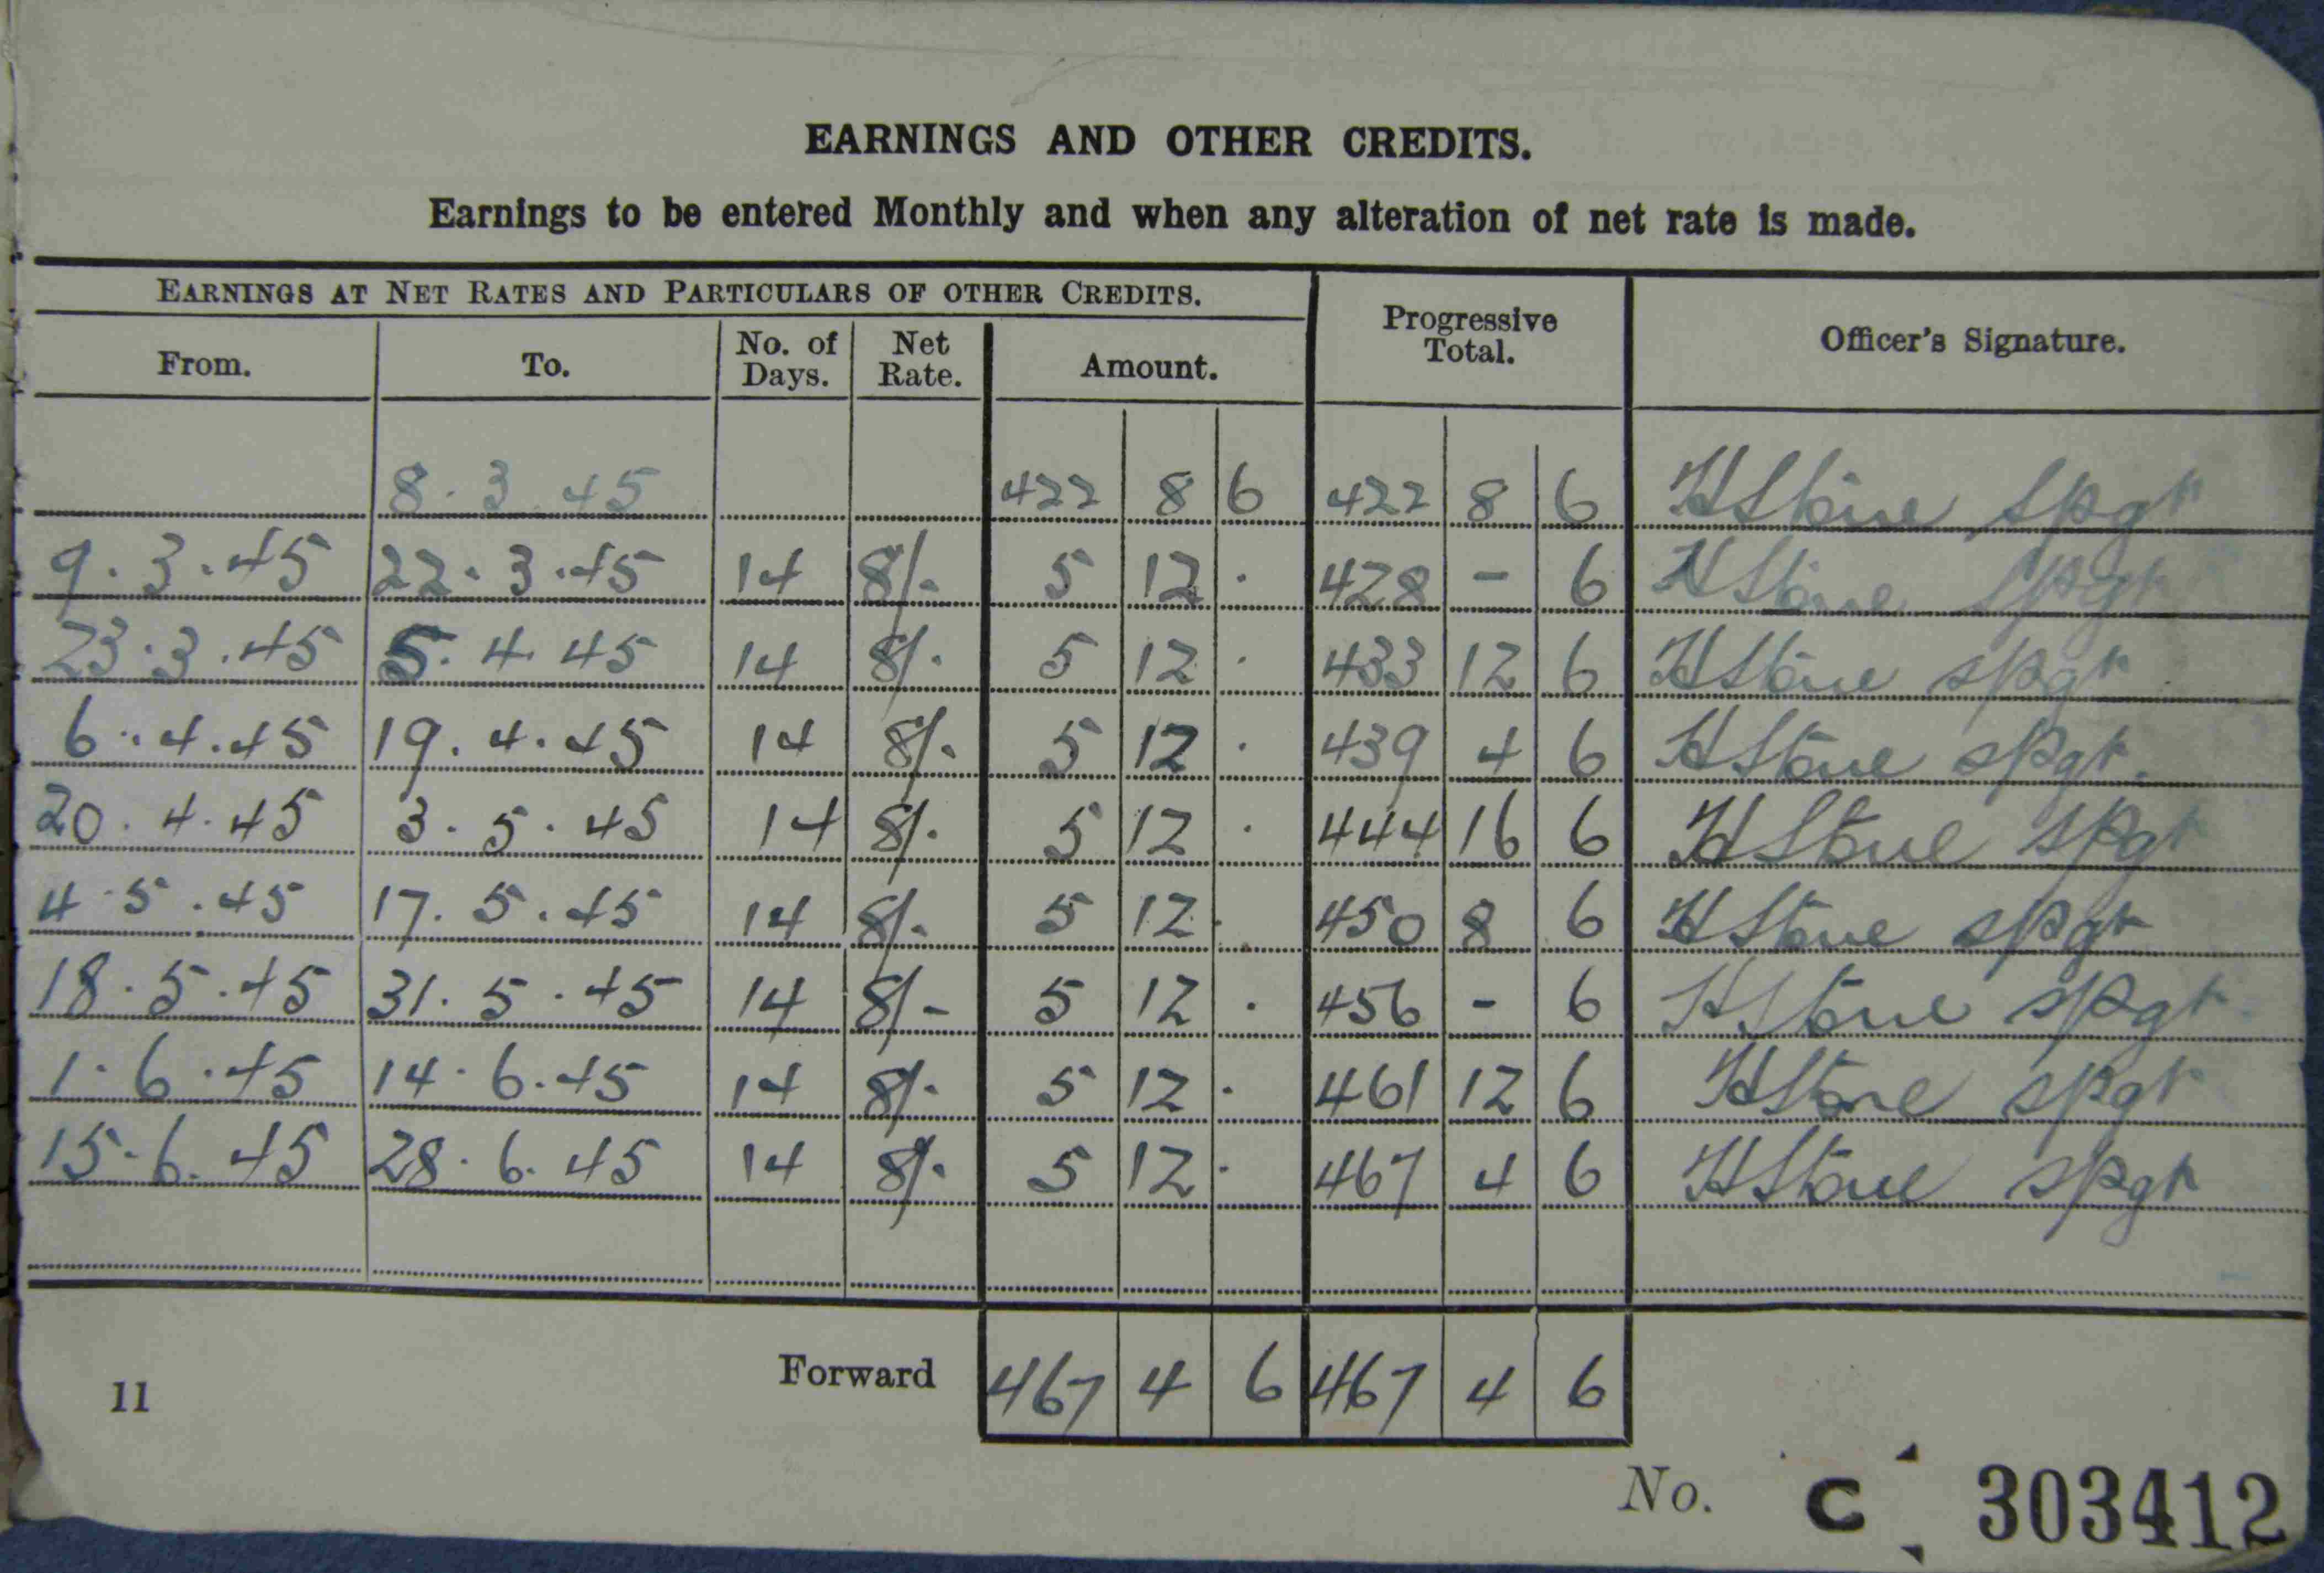 EARNINGS AND OTHER CREDITS.
Earnings to be entered Monthly and when any alteration of net rate is made.
EARNINGS AT NET RATES AND PARTICULARS OF OTHER CREDITS.
From. To. No. of Days. Net Rate. Amount. Progressive Total. Officer's Signature.
8.3.45 422 8 6 422 8 6 HStone Spgr
9.3.45 22.3.45 14 8/- 5 12 . 428 - 6 HStone Spgr
23.3.45 5.4.45 14 8/- 5 12 . 433 12 6 HStone spgr
6.4.45 19.4.45 14 8/- 5 12 . 439 4 6 HStone spgr.
20.4.45 3.5.45 14 8/- 5 12 . 444 16 6 HStone spgr
4.5.45 17.5.45 14 8/- 5 12 . 450 8 6 HStone spgr
18.5.45 31.5.45 14 8/- 5 12 . 456 - 6 HStone spgr.
1.6.45 14.6.45 14 8/- 5 12 . 461 12 6 HStone spgr
15.6.45 28.6.45 14 8/- 5 12 . 467 4 6 HStone spgr
Forward 467 4 6 467 4 6
11
No. C 303412